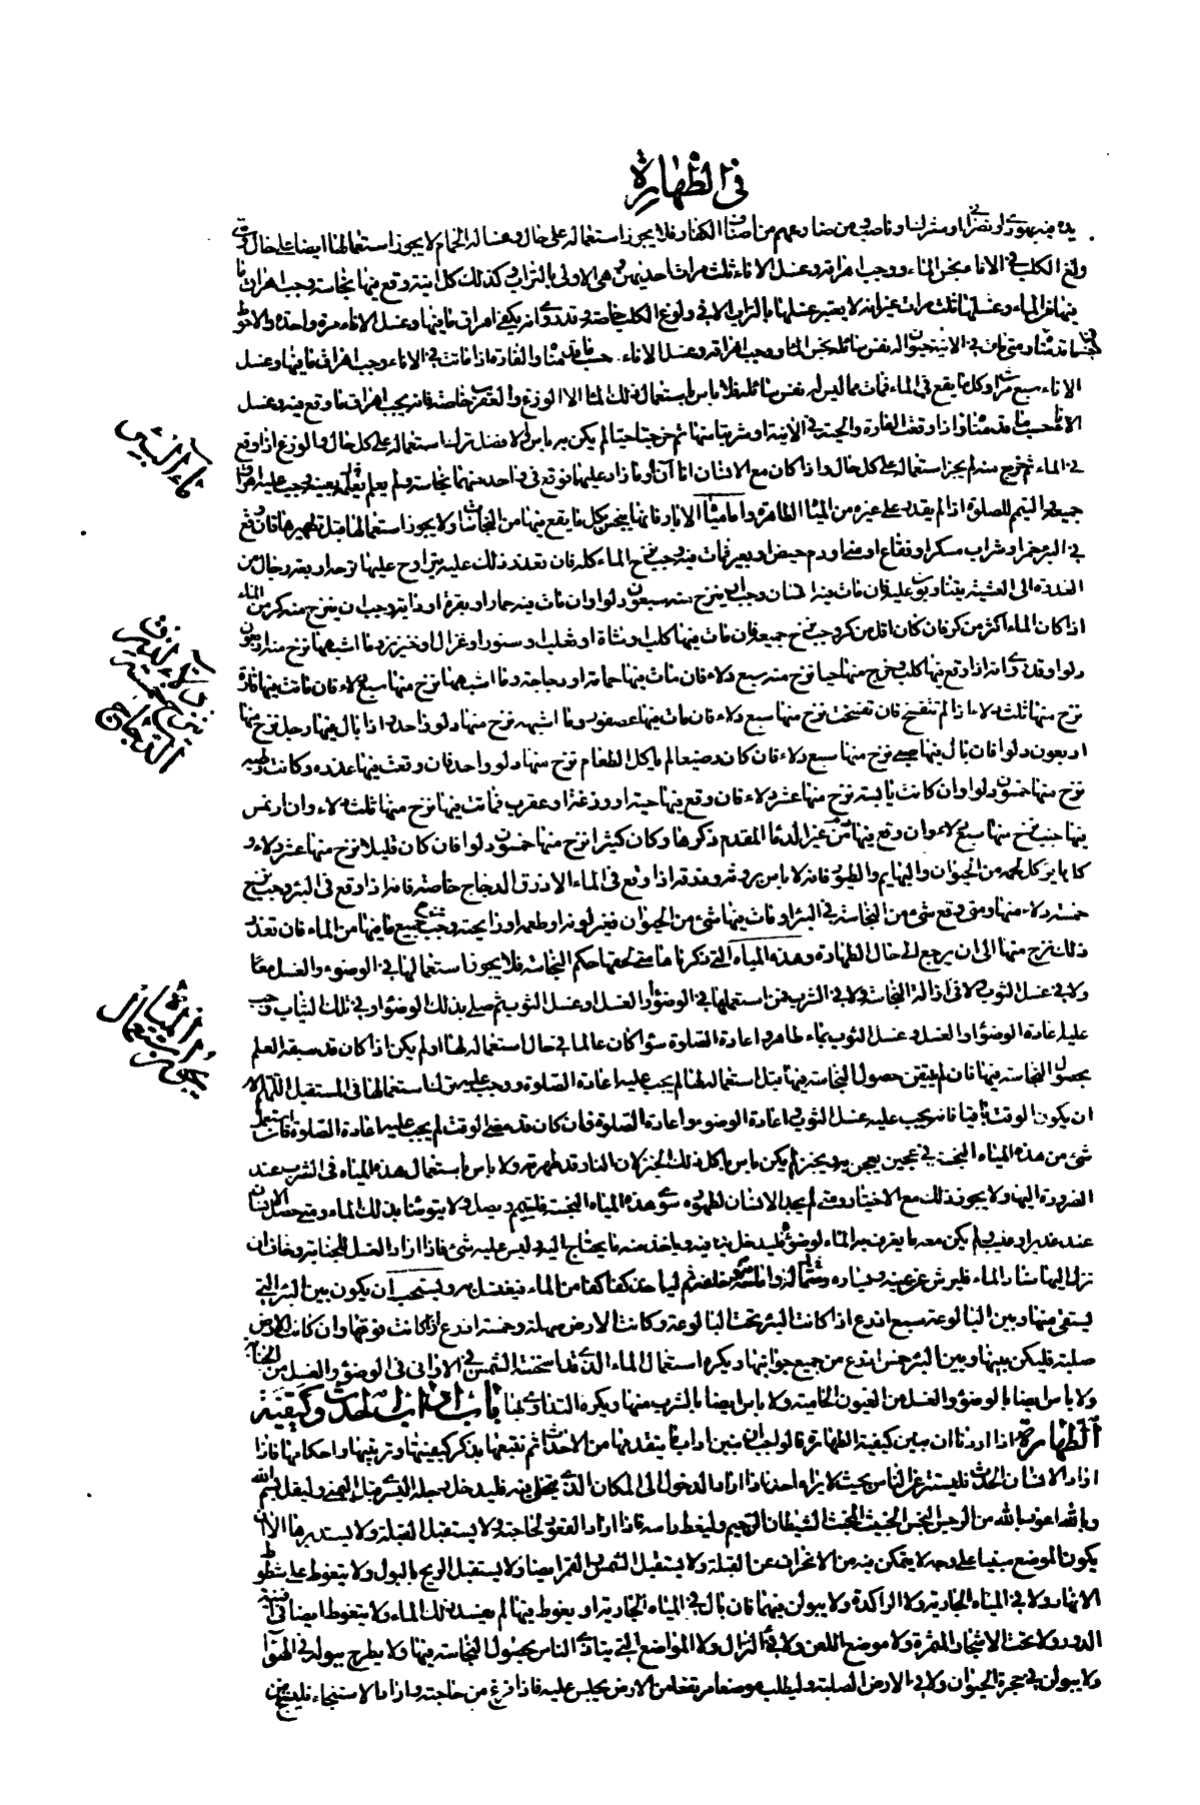 في الطهارة
يده فيه يهودي او نصراني او مشرك او ناصب ومن ضارعهم من اصناف الكفار فلا يجوز استعماله على حال وغسالة الحمام لا يجوز استعمالها ايضا على حال ومتى
ولغ الكلب في الاناء نجس الماء ووجب اهراقه وغسل الاناء ثلث مرات احديهن وهي الاولى بالتراب وكذلك كل انية وقع فيها نجاسة وجب اهراق ما
فيها من الماء وغسلها ثلث مرات غير انه لا يعتبر غسلها بالتراب الا في ولوغ الكلب خاصة وقد روي انه يكفي اهراق ما فيها وغسل الاناء مرة واحدة والاحوط
ما قدمناه ومتى مات في الانية حيوان له نفس سائلة نجس الماء ووجب اهراقه وغسل الاناء حسب ما قدمناه والفارة اذا ماتت في الاناء وجب اهراق ما فيها وغسل
الاناء سبع مرات وكل ما يقع في الماء فمات مما ليس له نفس سائلة فلا باس باستعمال ذلك الماء الا الوزغ والعقرب خاصة فانه يجب اهراق ما وقع فيه وغسل
الاناء حسب ما قدمناه واذا وقعت الفارة والحية في الانية او شربتا منها ثم خرجتا حيتا لم يكن به باس والافضل ترك استعماله على كل حال والوزغ اذا وقع
في الماء ثم خرج منه لم يجز استعماله على كل حال واذا كان مع الانسان اناآن او ما زاد عليهما فوقع في واحد منهما نجاسة ولم يعلمه بعينه وجب عليه اهراق
جميعه والتيمم للصلوة اذا لم يقدر على غيره من المياه الطاهرة واما مياه الابار فانها ينجس بكل ما يقع فيها من النجاسات ولا يجوز استعمالها قبل تطهيرها فان وقع
في البئر خمر او شراب مسكر او فقاع او مني او دم حيض او بعير فمات فيه وجب نزح الماء كله فان تعذر ذلك عليه تراوح عليها نزحه اربعة رجال من
الغدوة الى العشية يتناوبون عليه فان مات فيه انسان وجب ان ينزح منه سبعون دلوا وان مات فيه حمار او بقرة او دابة وجب ان ينزح منه كر من الماء
اذا كان الماء اكثر من كر فان كان اقل من كر وجب نزح جميعه فان مات فيها كلب او شاة او ثعلب او سنور او غزال او خنزير وما اشبهها نزح منه اربعون
دلوا وقد روي انه اذا وقع فيها كلب وخرج منها حيا نزح منه سبع دلاء فان مات فيها حمامة او دجاجة وما اشبههما نزح منها سبع دلاء فان ماتت فيها فارة
نزح منها ثلث دلاء اذا لم تتفسخ فان تفسخت نزح منها سبع دلاء فان مات فيها عصفور وما اشبهه نزح منها دلو واحد اذا بال فيها رجل نزح منها
اربعون دلوا فان بال فيها صبي نزح منها سبع دلاء فان كان رضيعا لم ياكل الطعام نزح منها دلو واحد فان وقعت فيها عذرة وكانت رطبة
نزح منها خمسون دلوا وان كانت يابسة نزح منها عشر دلاء فان وقع فيها حية او وزغة او عقرب فماتت فيها نزح منها ثلث دلاء وان ارتمس
فيها جنب نزح منها سبع دلاء وان وقع فيها دم من غير الدماء المقدم ذكرها وكان كثيرا نزح منها خمسون دلوا فان كان قليلا نزح منها عشر دلاء و
كل ما يؤكل لحمه من الحيوان والبهايم والطيور فانه لا باس بروثه وذرقه اذا وقع في الماء الا ذرق الدجاج خاصة فانه اذا وقع في البئر وجب نزح
خمسة دلاء منها ومتى وقع شئ من النجاسة في البئر او مات فيها شئ من الحيوان فغير لونه او طعمه او رايحته وجب نزح جميع ما فيها من الماء فان تعذر
ذلك نزح منها الى ان يرجع الى حال الطهارة وهذه المياه التي ذكرناها متى لحقها حكم النجاسة فلا يجوز استعمالها في الوضوء والغسل معا
ولا في غسل الثوب ولا في ازالة النجاسة ولا في الشرب فمن استعملها في الوضوء او الغسل او غسل الثوب ثم صلى بذلك الوضوء او في تلك الثياب وجب
عليه اعادة الوضوء او الغسل وغسل الثوب بماء طاهر واعادة الصلوة سواء كان عالما في حال استعماله لها او لم يكن اذا كان قد سبقه العلم
بحصول النجاسة فيها فان لم يتيقن حصول النجاسة فيها قبل استعماله لها لم يجب عليه اعادة الصلوة ووجب عليه ترك استعمالها في المستقبل اللهم الا
ان يكون الوقت باقيا فانه يجب عليه غسل الثوب واعادة الوضوء واعادة الصلوة فان كان قد مضى الوقت لم يجب عليه اعادة الصلوة فان استعمل
شئ من هذه المياه النجسة في عجين يعجن به ويخبز لم يكن باس باكل ذلك الخبز لان النار قد طهرته ولا باس باستعمال هذه المياه في الشرب عند
الضرورة اليها ولا يجوز ذلك مع الاختيار ومتى لم يجد الانسان لطهوره سوى هذه المياه النجسة فليتيمم وليصل ولا يتوضأ بذلك الماء ومتى حصل الانسان
عند غدير او قليب ولم يكن معه ما يغرف به الماء لوضوئه فليدخل يده فيه وياخذ منه ما يحتاج اليه وليس عليه شئ فاذا اراد الغسل للجنابة وخاف ان
نزل اليها فساد الماء فليرش عن يمينه ويساره وامامه وخلفه ثم لياخذ كفا كفا من الماء فيغتسل به ويستحب ان يكون بين البئر التي
يستقى منها وبين البالوعة سبع اذرع اذا كانت البئر تحت البالوعة وكانت الارض سهلة وخمسة اذرع اذا كانت فوقها وان كانت الارض
صلبة فليكن بينها وبين البئر خمس اذرع من جميع جوانبها ويكره استعمال الماء الذي قد اسخنته الشمس في الاواني في الوضوء والغسل من الجنابة
ولا باس ايضا بالوضوء والغسل من العيون الحامية ولا باس ايضا بالشرب منها ويكره التداوي بها باب اداب الحدث وكيفية
الطهارة اذا اردنا ان نبين كيفية الطهارة فالواجب ان نبين اداب ما يتقدمها من الاحداث ثم نتبعها بذكر كيفيتها وترتيبها واحكامها فاذا
اراد الانسان الحدث فليستتر عن الناس بحيث لا يراه احد فاذا اراد الدخول الى المكان الذي يتخلى فيه فليدخل رجله اليسرى قبل اليمنى وليقل بسم الله
وبالله اعوذ بالله من الرجس النجس الخبيث المخبث الشيطان الرجيم وليغط راسه فاذا اراد القعود لحاجته فلا يستقبل القبلة ولا يستدبرها الا ان
يكون الموضع مبنيا على وجه لا يتمكن فيه من الانحراف عن القبلة ولا يستقبل الشمس والقمر ايضا ولا يستقبل الريح بالبول ولا يتغوط على شطوط
الانهار ولا في المياه الجارية ولا الراكدة ولا يبولن فيهما فان بال في المياه الجارية او يغوط فيها لم يفسد ذلك الماء ولا يتغوط ايضا في افنية
الدور ولا تحت الاشجار المثمرة ولا مواضع اللعن ولا فئ النزال ولا المواضع التي يتاذى الناس بحصول النجاسة فيها ولا يطمح ببوله في الهواء
ولا يبولن في جحرة الحيوان ولا في الارض الصلبة وليطلب موضعا مرتفعا من الارض يجلس عليه فاذا فرغ من حاجته واراد الاستنجاء فليمسح
ماء البئر
الدجاج
المياه
استعمال